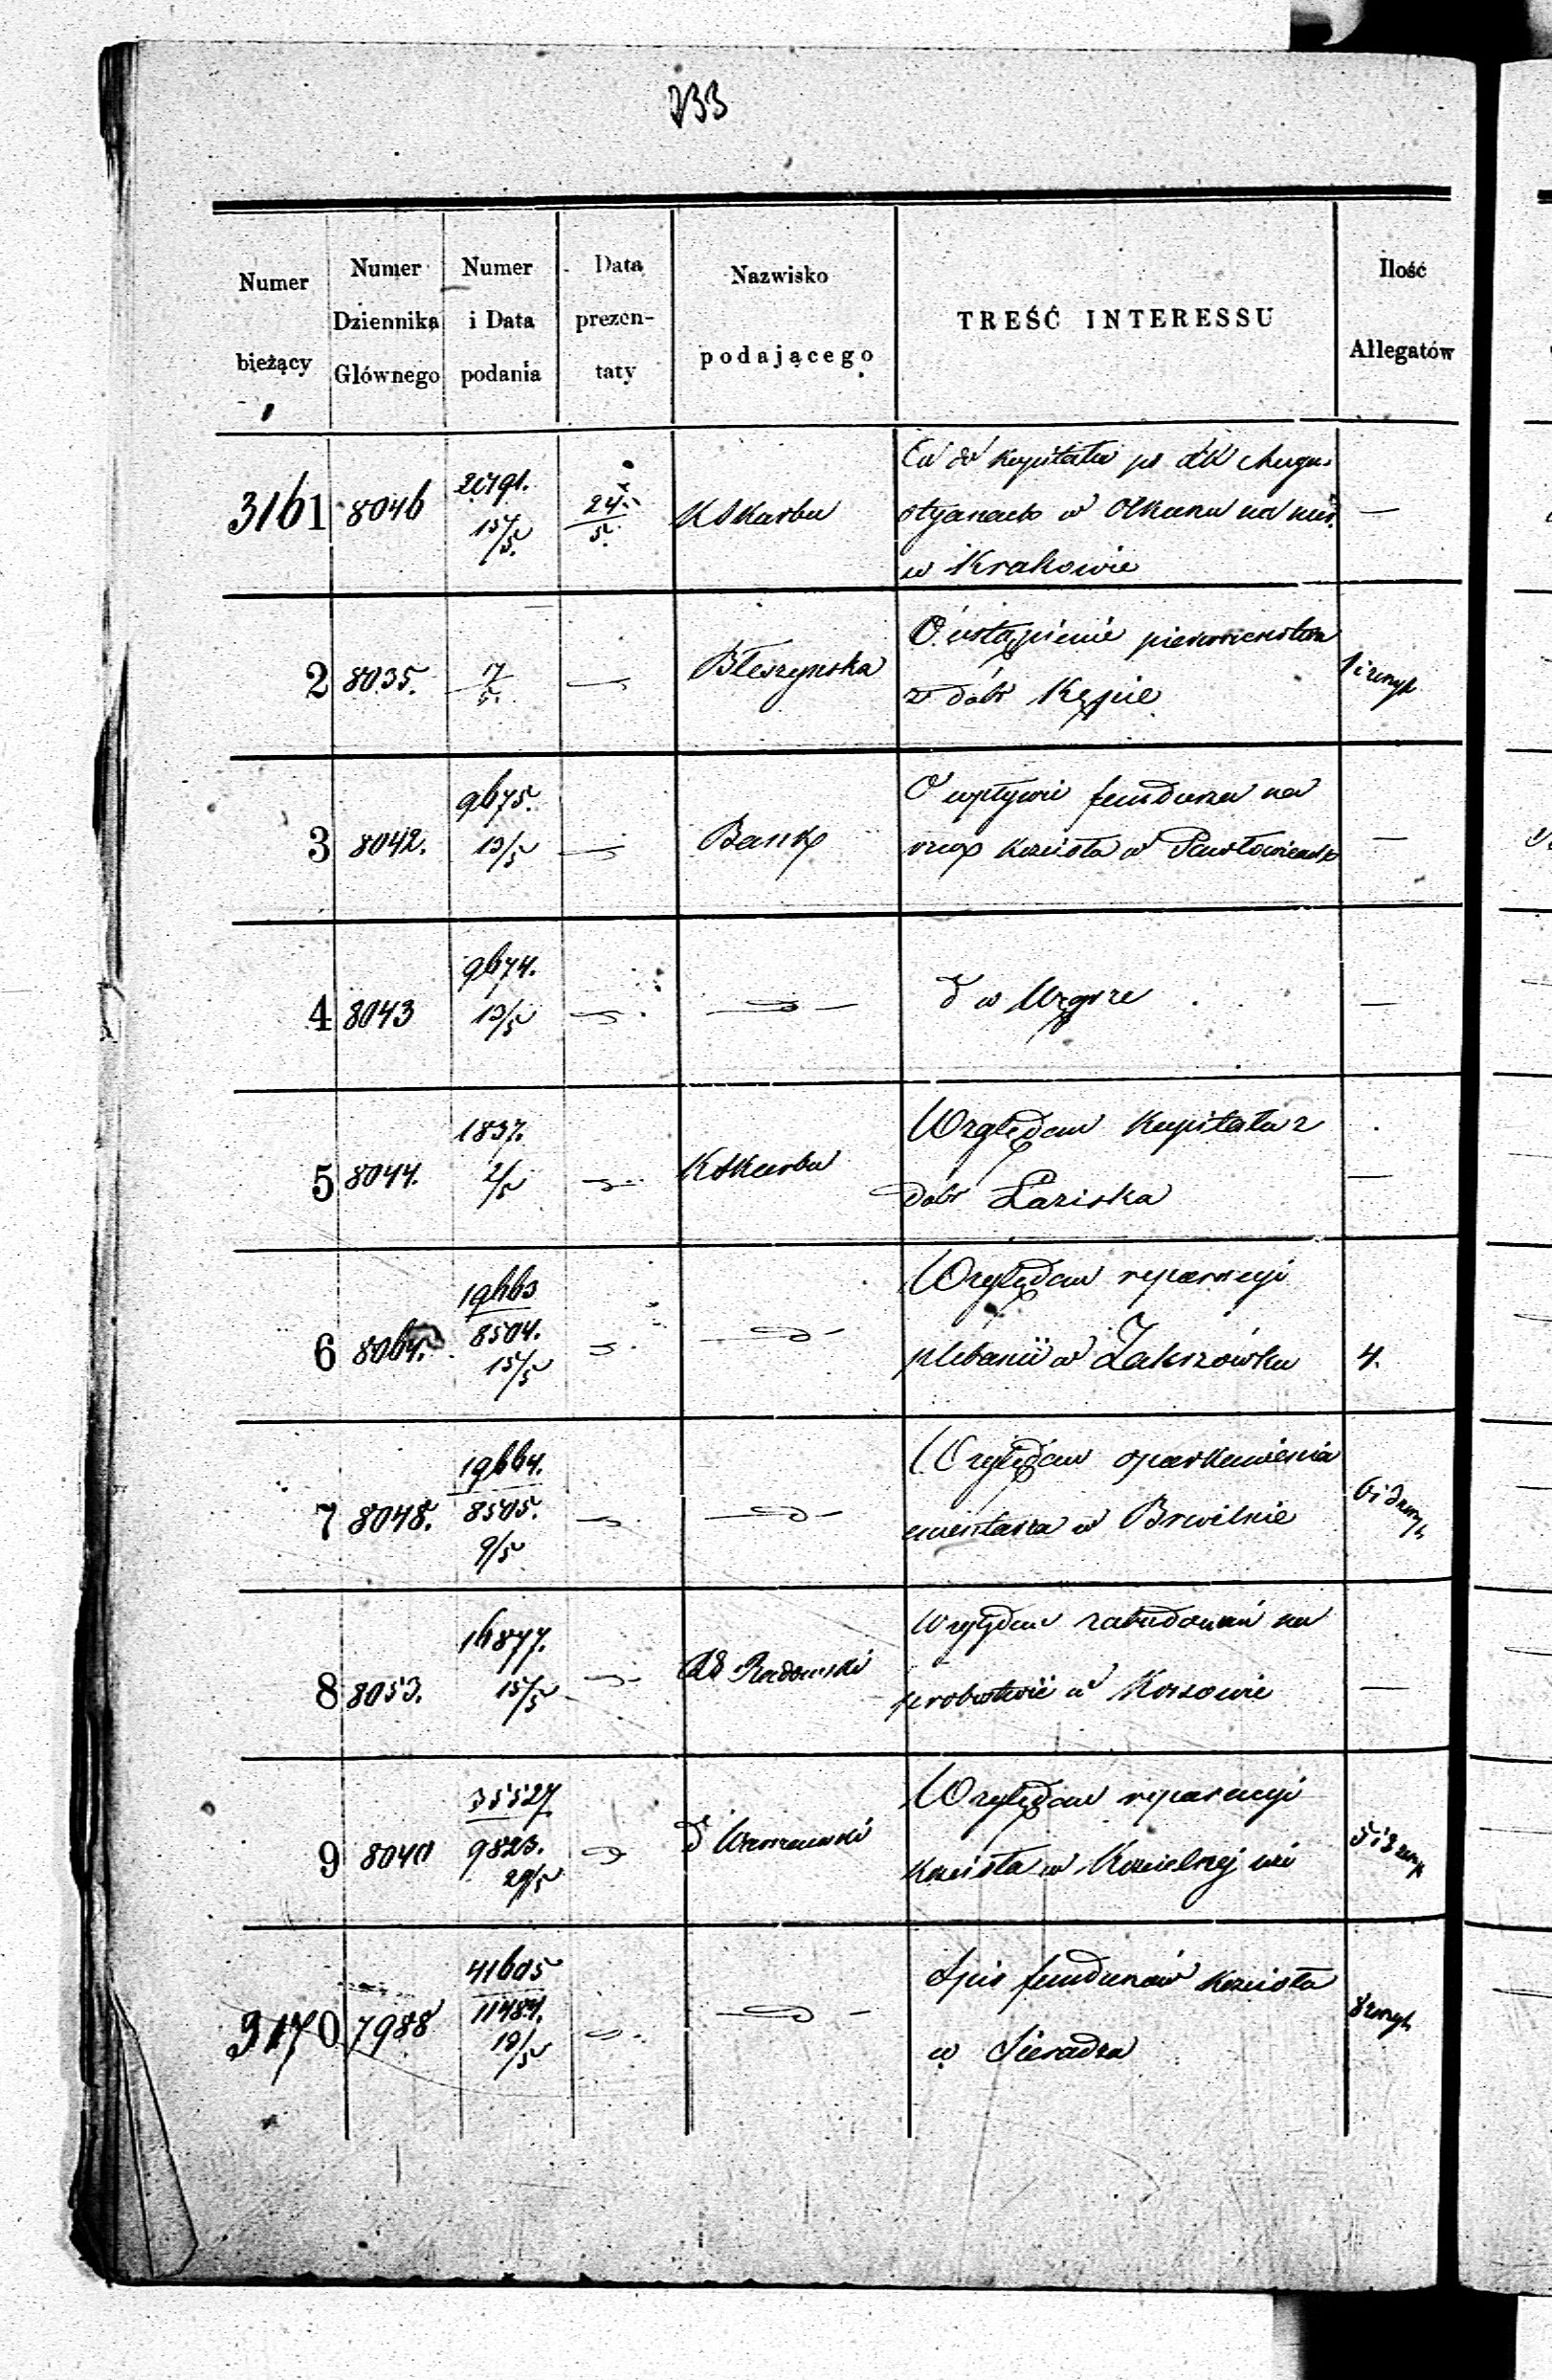 733
Numer bieżący
Numer Dziennika Głównego
Numer i Data podania
Data prezentaty
Nazwisko podającego
TREŚĆ INTERESSU
Ilość Allegatów
3161 8046 20791. 15/5. 24/5. KSkarbu
Co do kapitału po XX Augu-
styanach w Olkuszu na
w Krakowie
—
2 8035. 17/5. Błeszyńska
O ustąpienie pierwszeństwa
z dóbr Kępie
3 8042. 9675. 13/5 Bank
O wpływie funduszu na
kościoła w
—
4 8043 9674. 13/5
d w Mrgrze
—
5 8044. 1837. 2/5 KSkarbu
Względem Kapitału z
dóbr Łaziska
—
6 8064. 19663 8504. 15/5
Względem reparacyi
plebanii w Zakrzówku
4.
7 8048. 19664. 8505. 9/5
Względem oparkanienia
cmentarza w Brwilnie
8 8053. 16877. 15/5 Radomski
Względem zabudowań na
probostwie w Korzowie
—
9 8040 35527 9823. 29/5 Warszawski
Względem reparacyi
Kościoła w Kościelnej wsi
3170 7988 41605 11484. 19/5
Spis funduszów Kościoła
w Sieradzu